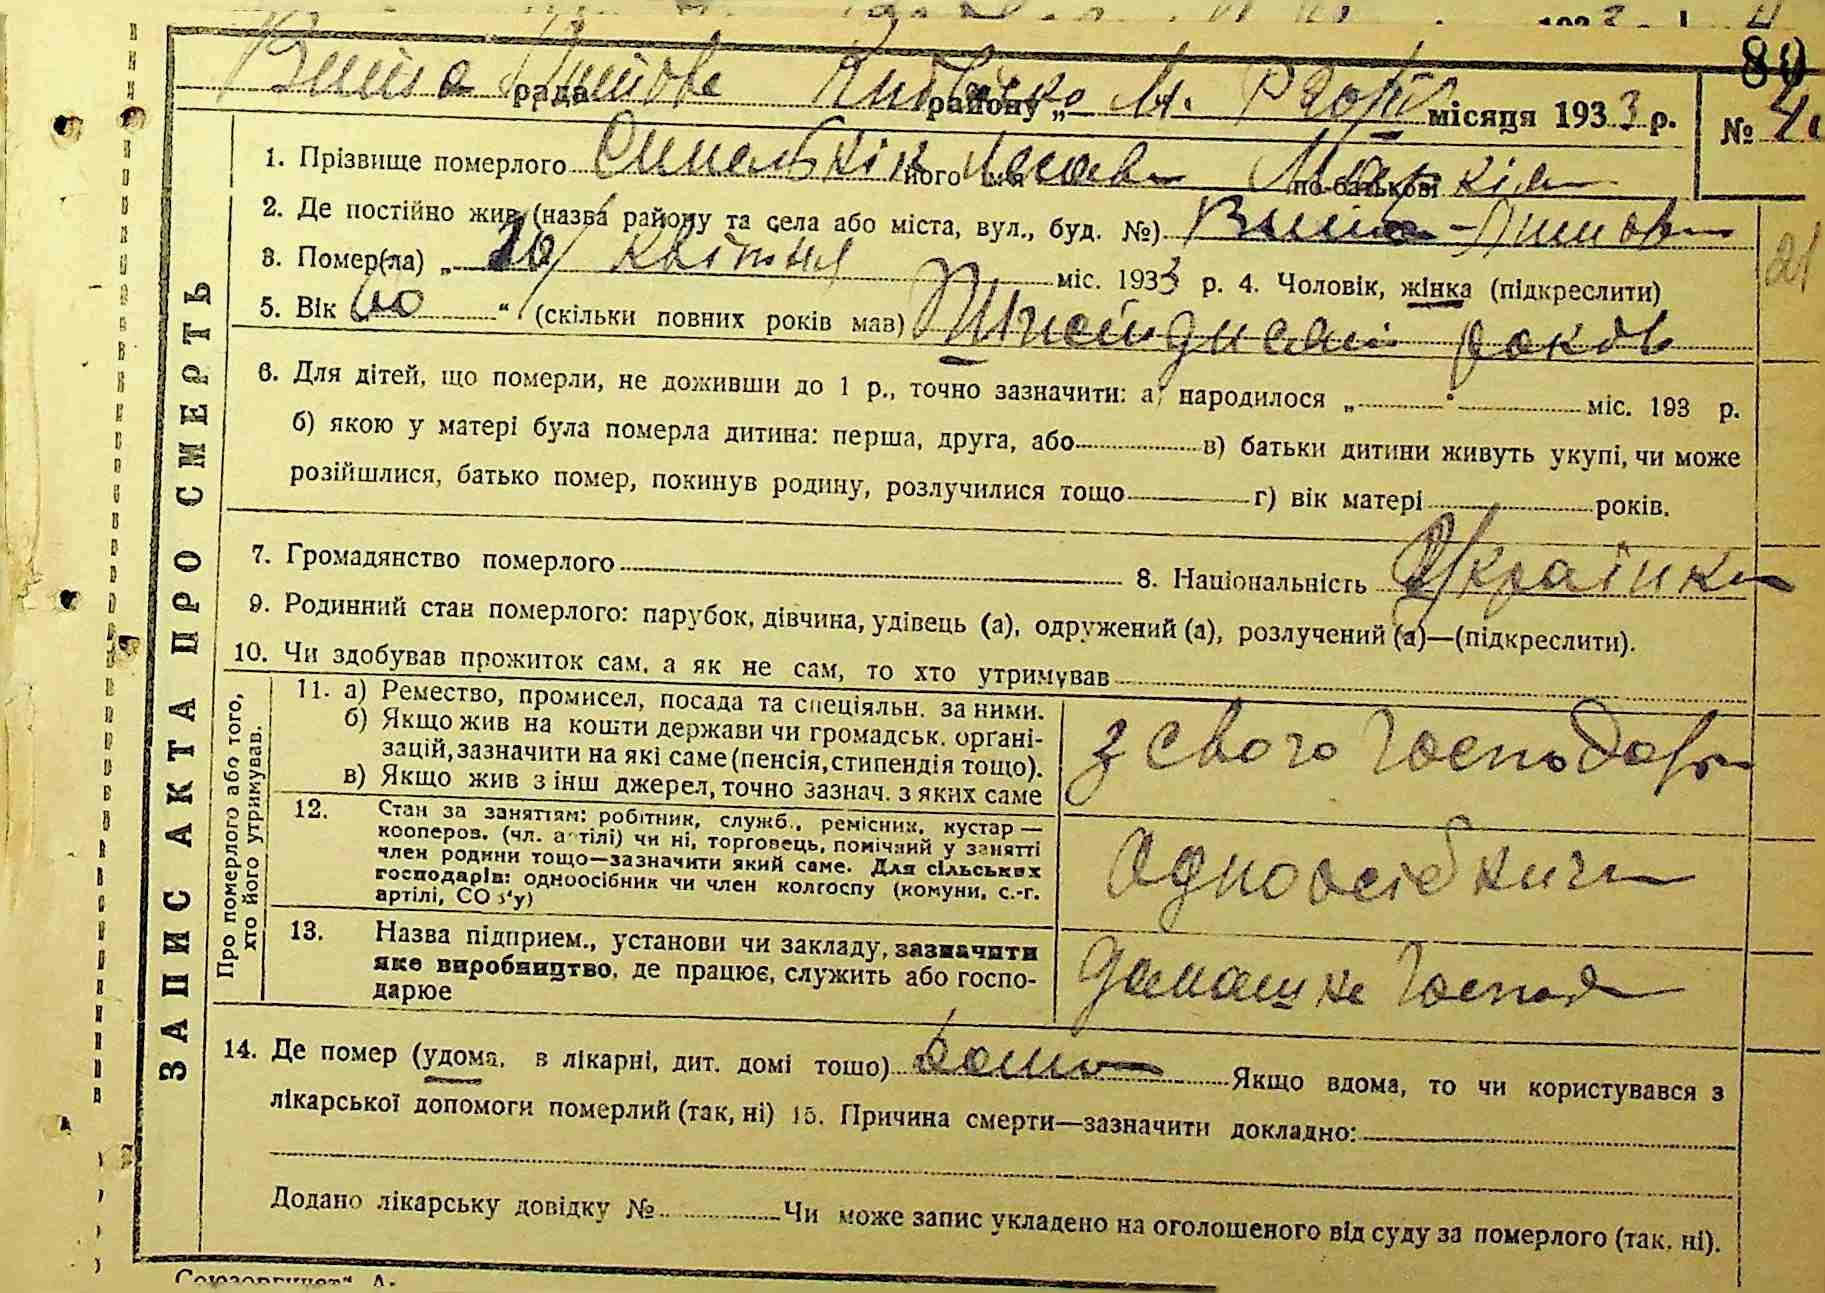 80
Вита Поштова рада Київсько М. району „ місяця 1933 р. №
ЗАПИС АКТА ПРО СМЕРТЬ
1. Прізвище померлого його імя по-батькові
2. Де постійно жив (назва району та села або міста, вул., буд. №) Вита-Поштова
21
3. Помер(ла) „ 26 квітня міс. 1933 р. 4. Чоловік, жінка (підкреслити)
5. Вік 60 “ (скільки повних років мав) Шистдисят роков
6. Для дітей, що померли, не доживши до 1 р., точно зазначити: а) народилося „ “ міс. 193 р.
б) якою у матері була померла дитина: перша, друга, або в) батьки дитини живуть укупі, чи може
розійшлися, батько помер, покинув родину, розлучилися тощо г) вік матері років.
7. Громадянство померлого 8. Національність Українка
9. Родинний стан померлого: парубок, дівчина, удівець (а), одружений (а), розлучений (а)—(підкреслити).
10. Чи здобував прожиток сам, а як не сам, то хто утримував
Про померлого або того,
хто його утримував.
11. а) Ремество, промисел, посада та спеціяльн. за ними.
б) Якщо жив на кошти держави чи громадськ. орґані-
зацій, зазначити на які саме (пенсія, стипендія тощо).
в) Якщо жив з інш джерел, точно зазнач. з яких саме
з свого господар
12. Стан за заняттям: робітник, служб., ремісник, кустар —
кооперов. (чл. артілі) чи ні, торговець, помічний у занятті
член родини тощо—зазначити який саме. Для сільських
господарів: одноосібник чи член колгоспу (комуни, с.-г.
артілі, СОЗ'у)
одноосібнича
13. Назва підприєм., установи чи закладу, зазначити
яке виробництво, де працює, служить або госпо-
дарює
домашнє господ
14. Де помер (удома, в лікарні, дит. домі тощо) дома Якщо вдома, то чи користувався з
лікарської допомоги померлий (так, ні) 15. Причина смерти—зазначити докладно:
Додано лікарську довідку № Чи може запис укладено на оголошеного від суду за померлого (так, ні).